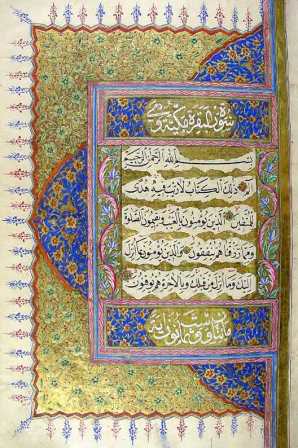 سورة البقرة مكية وهي
بسم الله الرحمن الرحيم
الم ذلك الكتاب لا ريب فيه هدى
للمتقين الذين يؤمنون بالغيب ويقيمون الصلوة
ومما رزقناهم ينفقون والذين يؤمنون بما انزل
اليك وما انزل من قبلك وبالاخرة هم يوقنون
مائتان وثمانون اية